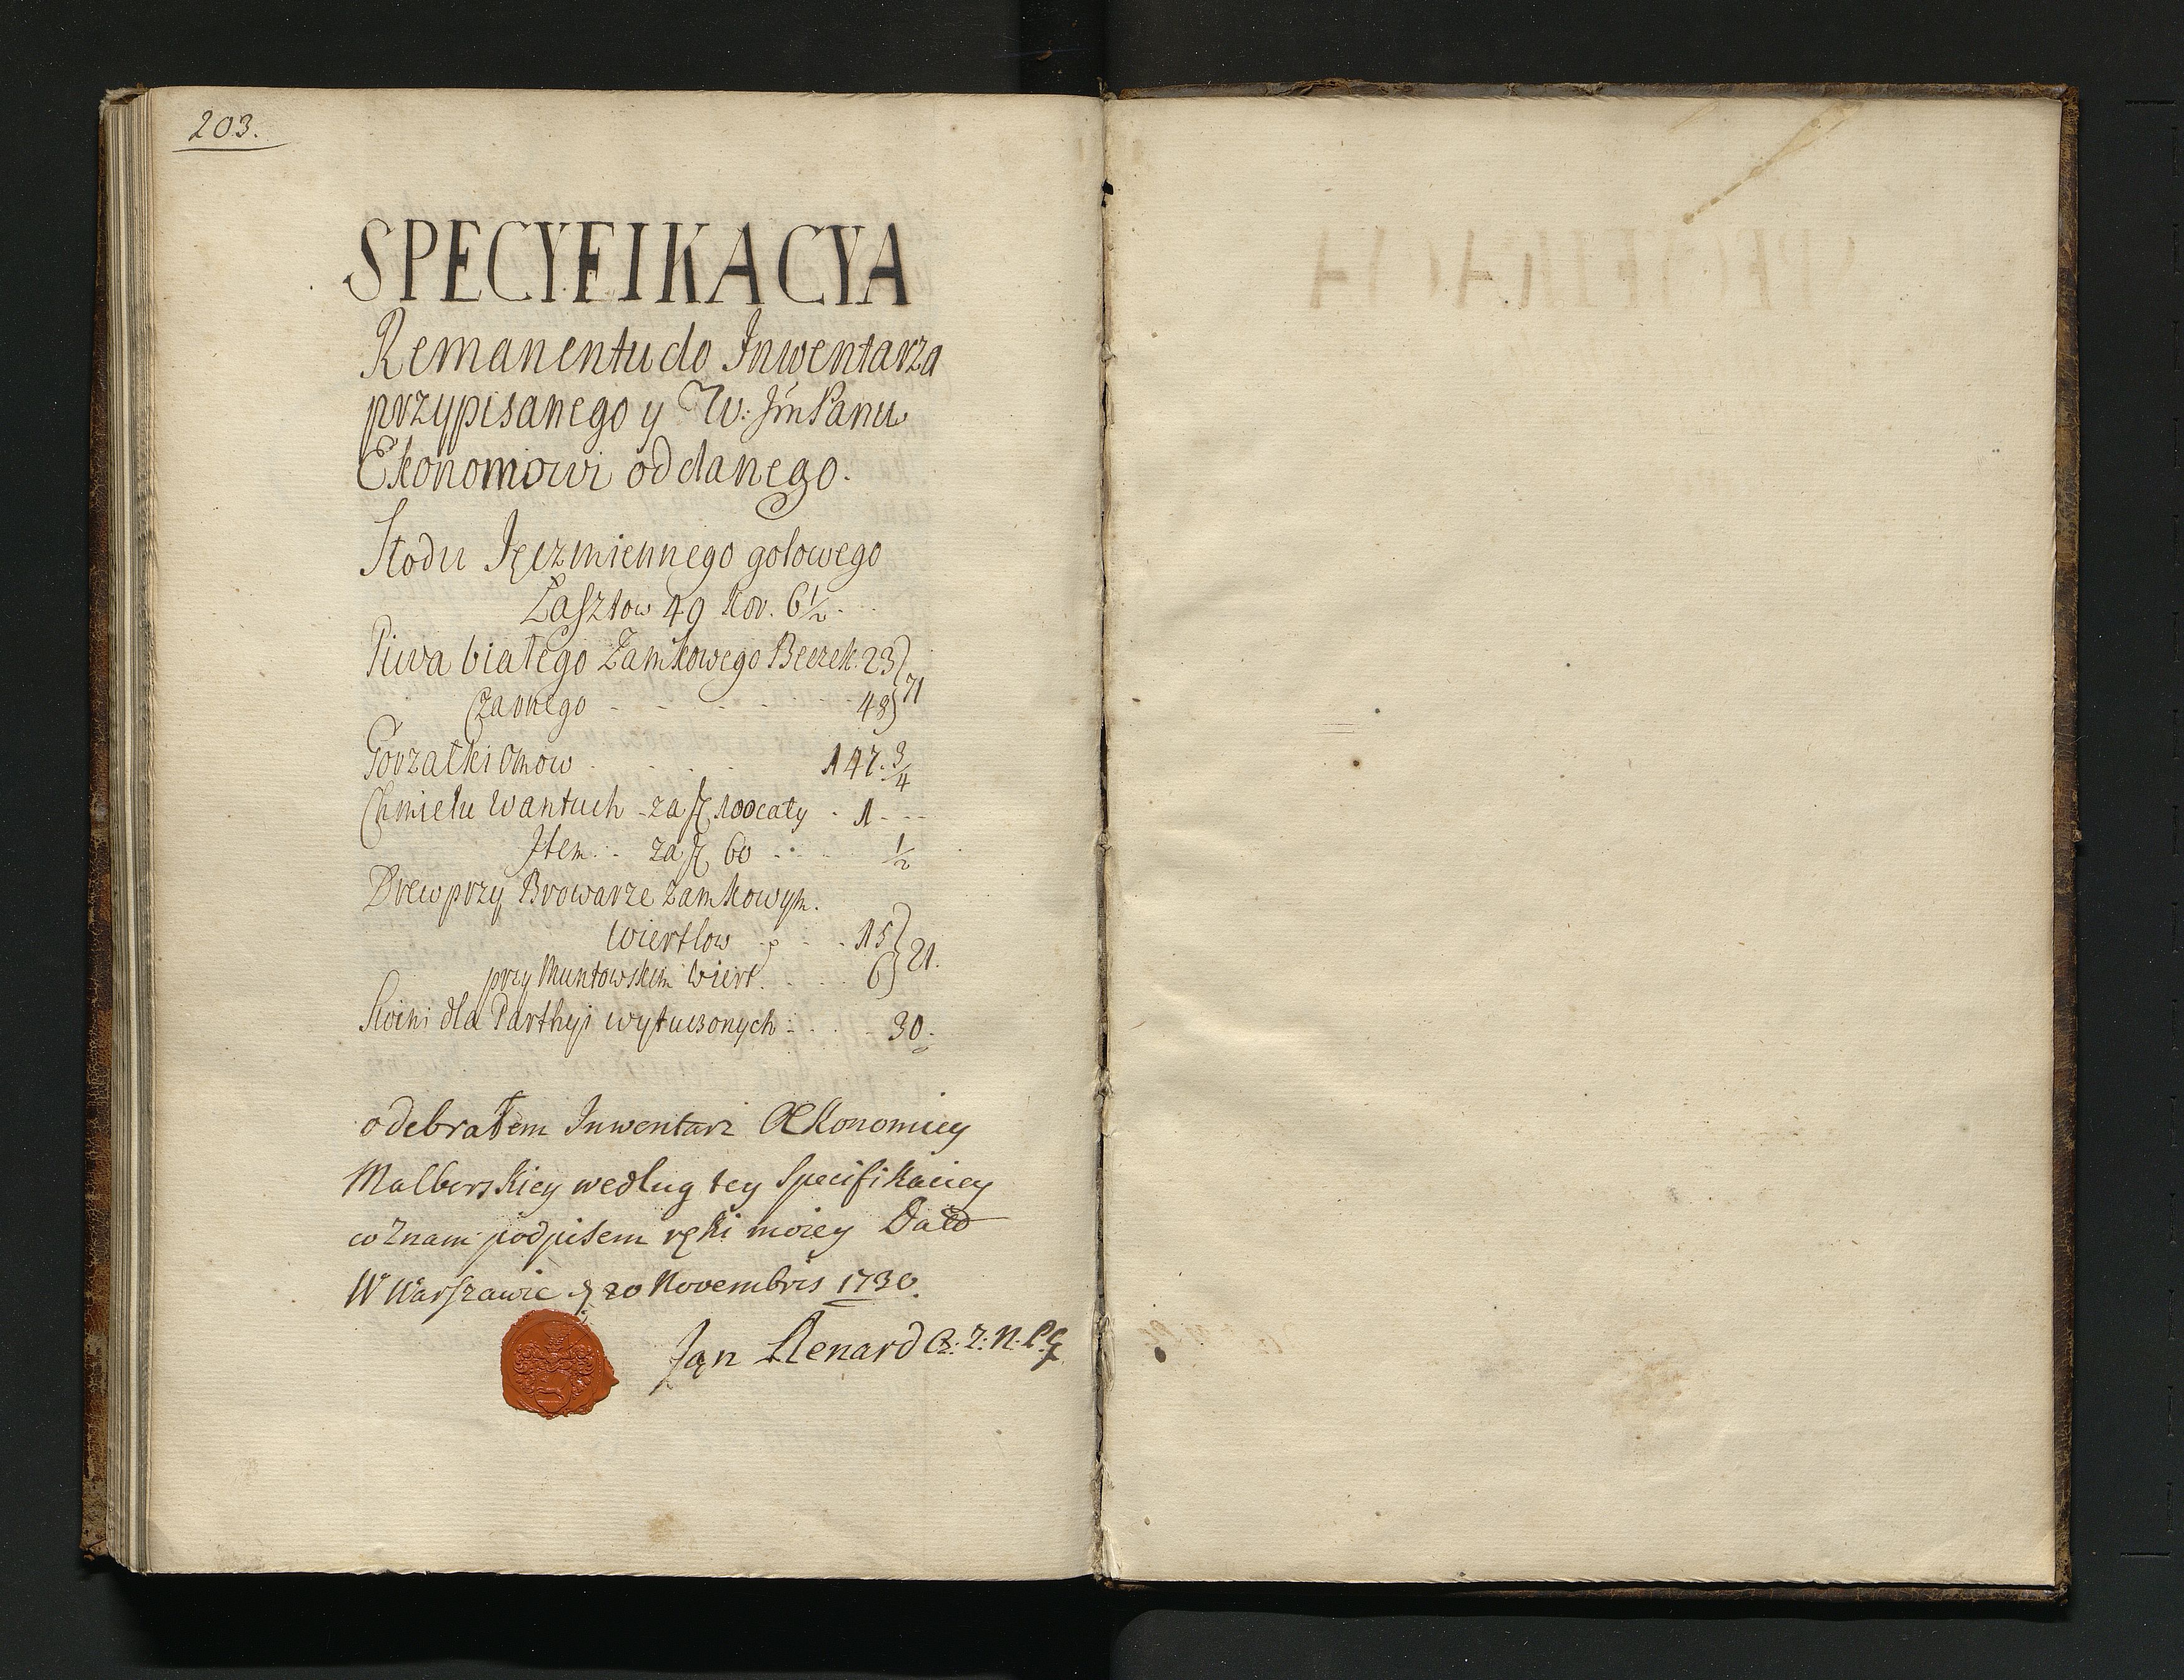 203.
SPECYFIKACYA
Remanentu do Inwentarza
przypisanego y W: Jm Panu
Ekonomowi oddanego.
Słodu Jęczmiennego gotowego
Łasztow 49 Kor. 6 1/2
Piwa białego Zamkowego Beczek. 23 } 71
Czarnego - - - - - 48 }
Gorzałki Omow - - - - 147. 3/4
Chmielu Wantuch - za fl 100 cały - 1 - -
Item - - za fl 60 - - - 1/2
Drew przy Browarze zamkowym.
Wiertlow - - - 15 } 21.
przy Muntowskim Wiert. - - - 6 }
Swini dla Parthyi wytuczonych - - - 30.
odebrałem Inwentarz Œkonomiey
Malborskiey według tey Specifikaciey
co Znam podpisem ręki moiey Dato
W Warszawie d 20 Novembris 1730.
Jan Renard